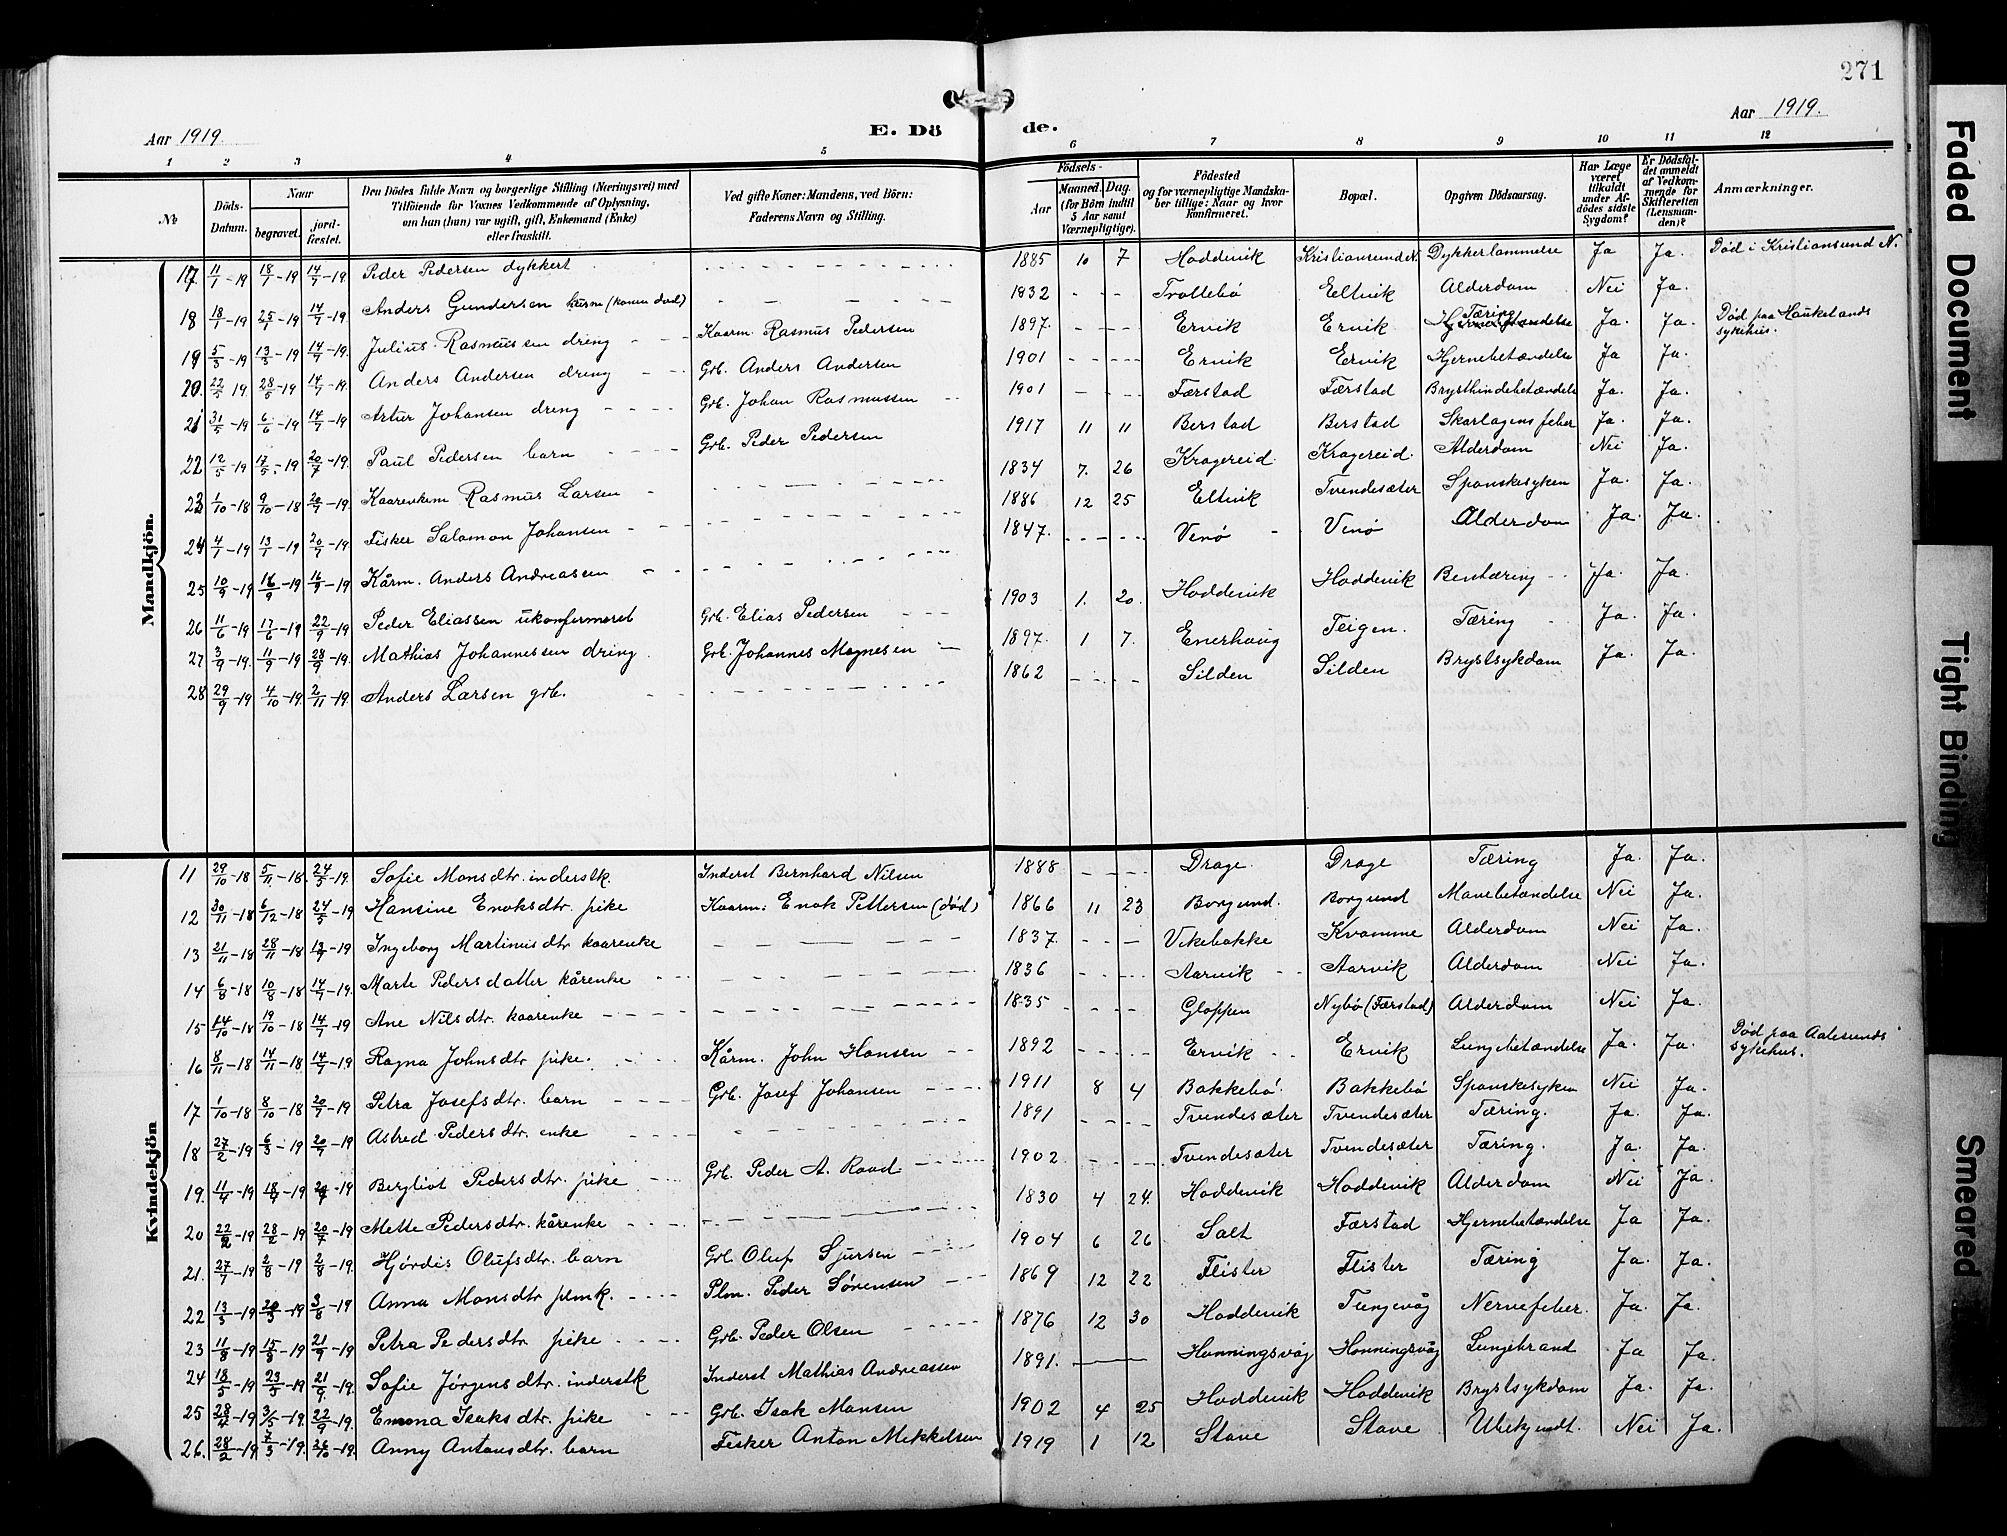 271
Aar 1919.
E. Dö de.
Aar 1919.
1 2 3 4 5 6 7 8 9 10 11 12
No
Döds-Datum.
Naar
begravet.
jordfæstet.
Den Dödes fulde Navn og borgerlige Stilling (Næringsvei) med Tilföiende for Voxnes Vedkommende af Oplysning, om han (hun) var ugift, gift, Enkemand (Enke) eller fraskilt.
Ved gifte Koner: Mandens, ved Börn: Faderens Navn og Stilling.
Födsels-
Aar
Maaned. Dag.
(for Börn indtil 5 Aar samt Værnepligtige).
Födested og for værnepligtige Mandskaber tillige: Naar og hvor konfirmeret.
Bopæl.
Opgiven Dödsaarsag.
Har Læge været tilkaldt under Afdödes sidste Sygdom?
Er Dödsfaldet anmeldt af Vedkommende for Skifteretten (Lensmanden)?
Anmærkninger.
Mandkjön.
17 11/1-19 18/1-19 14/7-19 Peder Pedersen dykkert 1885 10 7 Hoddevik Kristiansund N. Dykkerlammelse Ja Ja. Død i Kristiansund N.
18 18/1-19 25/1-19 14/7-19 Anders Gundersen kårm (konen død) 1832 Trollebø Eltvik Alderdom Nei Ja.
19 5/3-19 13/3-19 14/7-19. Julius Rasmussen dreng Kaarm. Rasmus Pedersen 1897. Ervik Ervik Tæring Ja. Ja. Død paa Haukelands sykehus.
20. 22/5-19. 28/5-19 14/7-19. Anders Andersen dreng Grb. Anders Andersen 1901 Ervik Ervik Hjernebetændelse Ja Ja.
21 31/5-19 6/6-19 14/7-19 Artur Johansen dreng Grb. Johan Rasmussen 1901 Færstad Færstad Brysthindebetændelse Ja. Ja.
22 12/5-19 17/5-19 20/7-19. Paul Pedersen barn Grb. Peder Pedersen 1917 11 11 Berstad Berstad Skarlagensfeber Ja. Ja.
23 1/10-18 9/10-18 20/7-19. Kaarenkem Rasmus Larsen 1834 7. 26 Kragereid. Kragereid. Alderdom Nei Ja.
24 4/1-19 13/1-19 20/7-19 Fisker Salomon Johansen 1886 12 25 Eltvik Tvendesæter Spanskesyken Ja. Ja.
25 10/9-19 16/9-19 16/9-19 Kårm. Anders Andreassen 1847. Venø Venø Alderdom Ja. Ja.
26 11/6-19 17/6-19 22/9-19 Peder Eliassen ukonfirmeret Grb. Elias Pedersen 1903 1. 20. Hoddevik Hoddevik Bentæring Ja. Ja.
27 3/9-19. 11/9-19 28/9-19. Mathias Johannessen dreng. Grb. Johannes Mognesen 1897. 1 7. Enerhaug Teigen. Tæring Ja. Ja.
28 29/9-19 4/10-19. 2/11-19. Anders Larsen grb. 1862 Silden Silden Brystsykdom Ja. Ja.
Kvindekjön
11 29/10-18 5/11-18. 24/5-19. Sofie Monsdtr. inderstk. Inderst Bernhard Nilsen 1888 Drage. Drage Tæring Ja. Ja.
12 30/11-18 6/12-18 24/5-19 Hansine Enoksdtr. pike Kaarm: Enok Pettersen (død) 1866 11 23 Borgund. Borgund Mavebetændelse Nei Ja.
13 21/11-18 28/11-18 13/7-19 Ingeborg Martinusdtr kaarenke 1837. Vikebakke Kvamme Alderdom Nei Ja.
14 6/8-18 10/8-18 14/7-19. Marte Pedersdatter kårenke 1836 Aarvik Aarvik Alderdom Nei Ja.
15 14/10-18 19/10-18 14/7-19 Ane Nilsdtr. kaarenke 1835 Gloppen Nybø (Færstad) Alderdom Nei Ja.
16 8/11-18 14/11-18 14/7-19 Ragna Johnsdtr pike. Kårm. John Hansen 1892 Ervik Ervik Lungebetændelse Ja. Ja. Død paa Aalesunds sykehus.
17 1/10-18 8/10-18 20/7-19 Petra Josefsdtr. barn Grb. Josef Johansen 1911 8 4 Bakkebø. Bakkebø Spanskesyken Nei Ja.
18 27/2-19 6/3-19 20/7-19 Astred Pedersdtr. enke 1891 Tvendesæter Tvendesæter Tæring. Ja. Ja.
19. 11/4-19 18/4-19 20/7-19 Bergliot Pedersdtr. pike Grb. Peder A. Raad 1902. Tvendesæter Tvendesæter Tæring. Ja. Ja.
20 22/2-19 28/2-19 20/7-19 Mette Pedersdtr. kårenke 1830 4 24. Hoddevik Hoddevik Alderdom Nei Ja.
21. 27/7-19 2/8-19 2/8-19. Hjørdis Olufsdtr. barn Grb Oluf Sjursen 1904 6 26 Salt Færstad Hjernebetændelse Ja Ja.
22 13/5-19 20/5-19 3/8-19 Anna Monsdtr plmk. Plm. Peder Sørensen 1869 12 22 Flister Flister Tæring Ja. Ja.
23 11/8-19 15/8-19 21/9-19 Petra Pedersdtr. pike Grb. Peder Olsen 1876 12 30 Hoddevik Tungevåg Nervefeber. Ja. Ja.
24 18/5-19 23/5-19 21/9-19. Sofie Jørgensdtr. inderstk Inderst Mathias Andreassen 1891. Honningsvåg Honningsvåg Lungebrand Ja Ja.
25 28/4-19 3/5-19. 22/9-19. Emma Isaksdtr. pike Grb. Isak Monsen 1902 4 25 Hoddevik Hoddevik Brystsykdom Ja. Ja.
26. 28/2-19 7/3-19. 26/10-19. Anny Antonsdtr. barn Fisker Anton Mikkelsen 1919 1 12 Stave Stave Ubekjendt. Nei Ja.
Faded Document
Tight Binding
Smeared